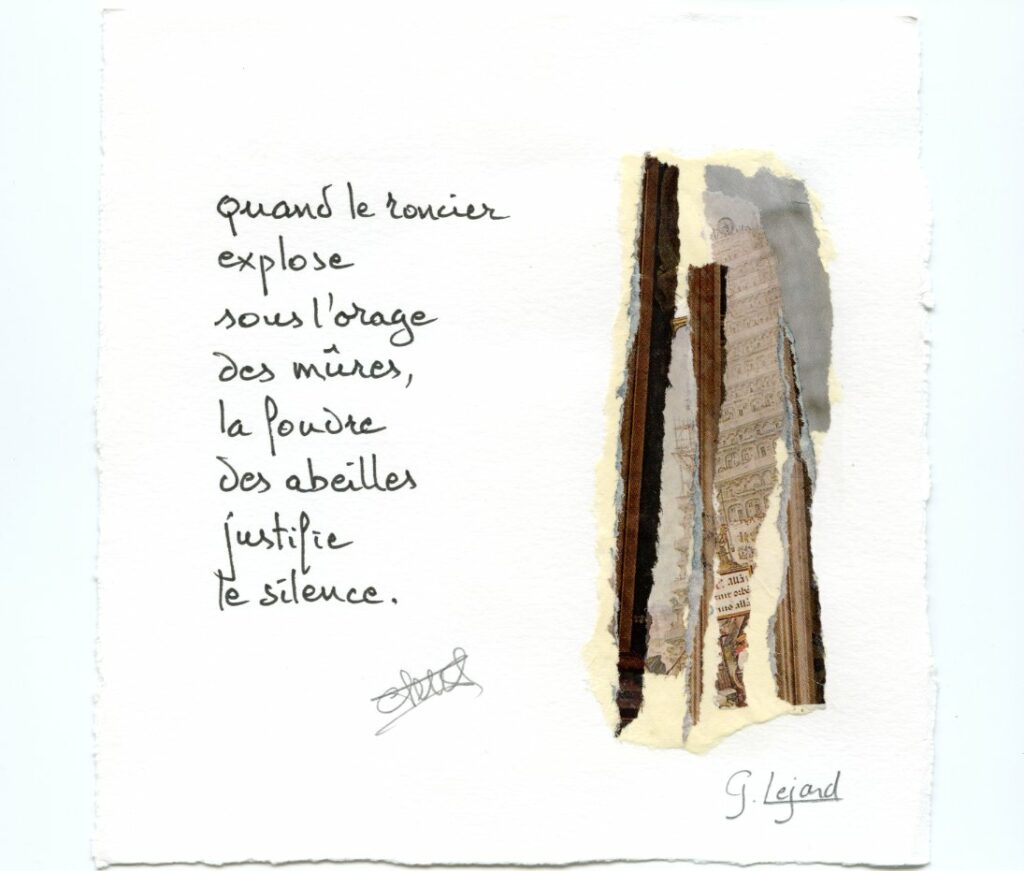 quand le roncier
explose
sous l'orage
des mûres,
la foudre
des abeilles
justifie
le silence.
G. Lejard